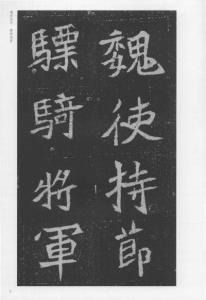 魏使持節
驃騎將軍